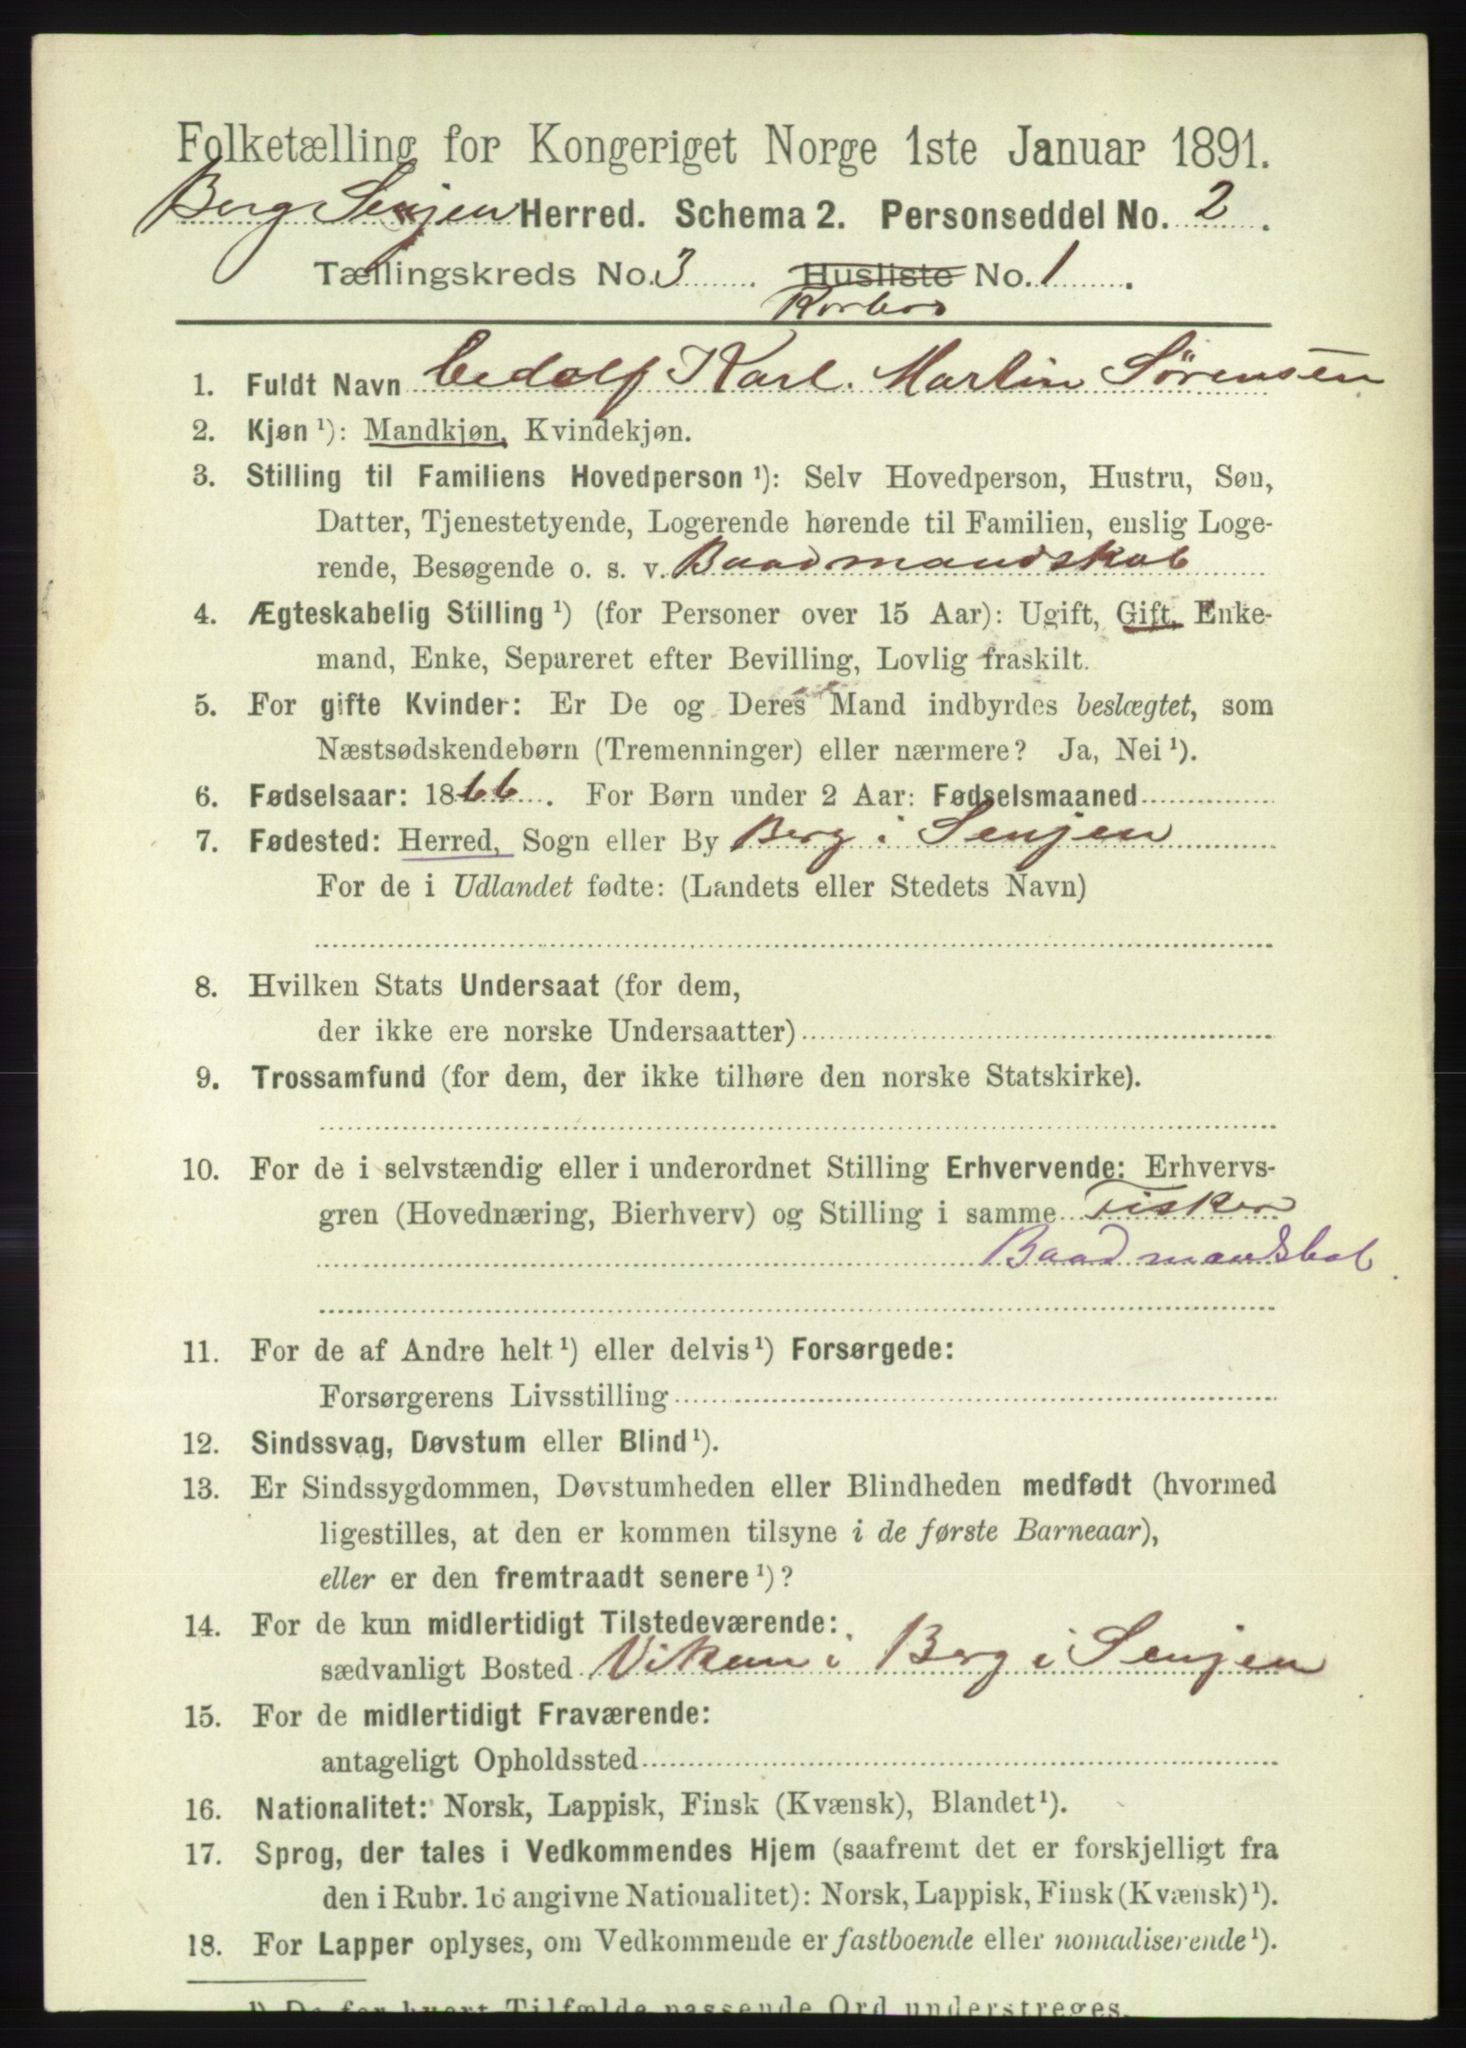 Folketælling for Kongeriget Norge 1ste Januar 1891.
Berg Senjen Herred. Schema 2. Personseddel No. 2.
Tællingskreds No. 3. Husliste No. 1.
1. Fuldt Navn Karl. Martin Sørensen
2. Kjøn ¹): Mandkjøn, Kvindekjøn.
3. Stilling til Familiens Hovedperson ¹): Selv Hovedperson, Hustru, Søn,
Datter, Tjenestetyende, Logerende hørende til Familien, enslig Loge-
rende, Besøgende o. s. v. Baadmandskab
4. Ægteskabelig Stilling ¹) (for Personer over 15 Aar): Ugift, Gift, Enke-
mand, Enke, Separeret efter Bevilling, Lovlig fraskilt.
5. For gifte Kvinder: Er De og Deres Mand indbyrdes beslægtet, som
Næstsødskendebørn (Tremenninger) eller nærmere? Ja, Nei ¹).
6. Fødselsaar: 1866. For Børn under 2 Aar: Fødselsmaaned
7. Fødested: Herred, Sogn eller By Berg i Senjen
For de i Udlandet fødte: (Landets eller Stedets Navn)
8. Hvilken Stats Undersaat (for dem,
der ikke ere norske Undersaatter)
9. Trossamfund (for dem, der ikke tilhøre den norske Statskirke).
10. For de i selvstændig eller i underordnet Stilling Erhvervende: Erhvervs-
gren (Hovednæring, Bierhverv) og Stilling i samme Fisker
Baadmandskab
11. For de af Andre helt ¹) eller delvis ¹) Forsørgede:
Forsørgerens Livsstilling
12. Sindssvag, Døvstum eller Blind ¹).
13. Er Sindssygdommen, Døvstumheden eller Blindheden medfødt (hvormed
ligestilles, at den er kommen tilsyne i de første Barneaar),
eller er den fremtraadt senere ¹)?
14. For de kun midlertidigt Tilstedeværende:
sædvanligt Bosted Viken i Berg i Senjen
15. For de midlertidigt Fraværende:
antageligt Opholdssted
16. Nationalitet: Norsk, Lappisk, Finsk (Kvænsk), Blandet ¹).
17. Sprog, der tales i Vedkommendes Hjem (saafremt det er forskjelligt fra
den i Rubr. 16 angivne Nationalitet): Norsk, Lappisk, Finsk (Kvænsk) ¹).
18. For Lapper oplyses, om Vedkommende er fastboende eller nomadiserende ¹).
¹) De for hvert Tilfælde passende Ord understreges.